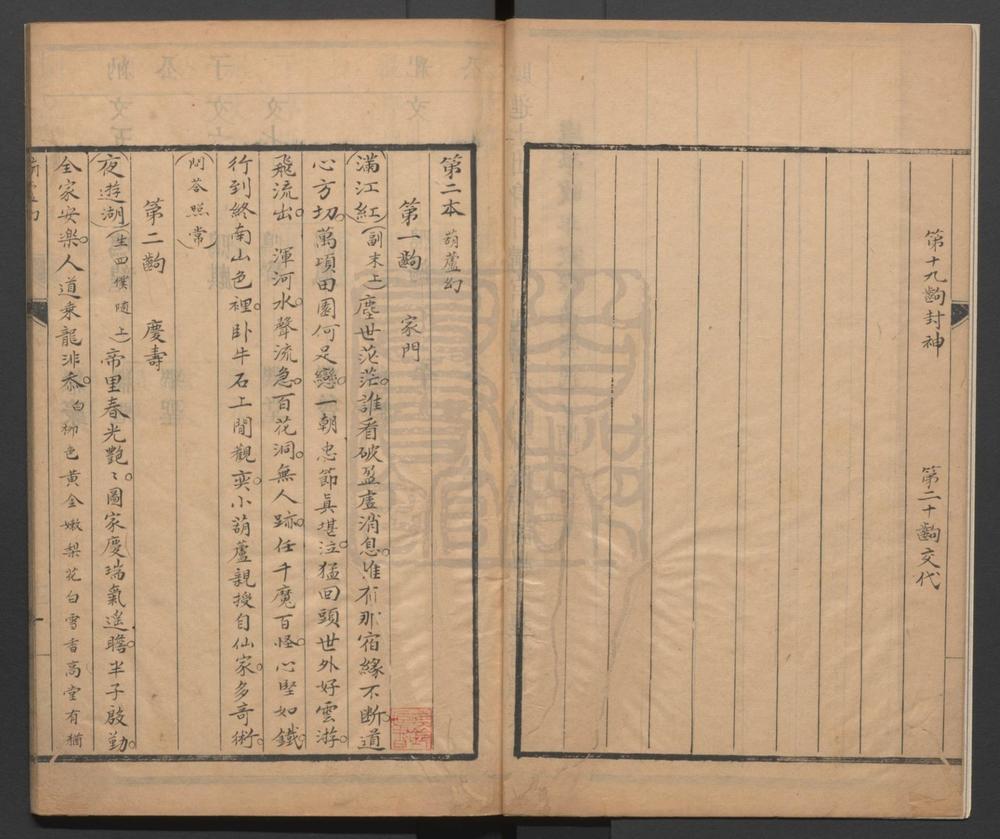 第十九齣封神
第二十齣交代
第二本 葫蘆幻
第一齣 家門
(滿江紅)(副末上)塵世茫茫。誰看破盈虛消息。惟有那宿緣不斷道
心方切。萬頃田園何足戀。一朝忠節真堪泣。猛回頭世外好雲游。
飛流出。 渾河水。聲流急。百花洞。無人跡。任千魔百怪。心堅如鐵。
行到終南山色裡。臥牛石上閒觀奕。小葫蘆親授自仙家。多奇術。
(問答照常)
第二齣 慶壽
(夜遊湖)(生四僕隨上)帝里春光艷。〻圖家慶瑞氣遙瞻。半子殷勤。
全家安樂。人道乘龍非忝。白柳色黃金嫩梨花白雪香高堂有